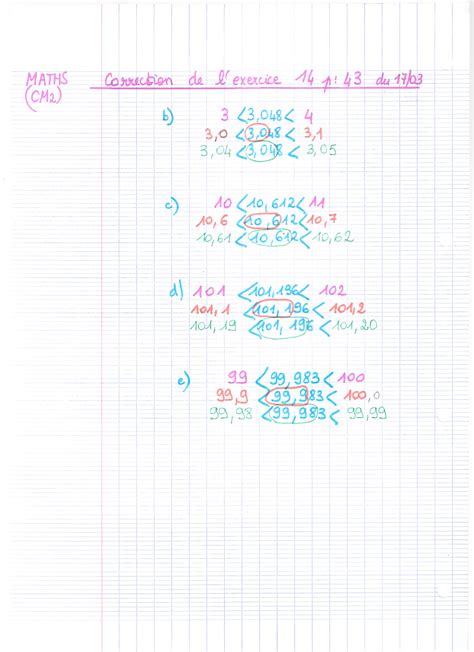 MATHS Correction de l'exercice 14 p: 43 du 17/03
(CM2)
b) 3 < 3,048 < 4
3,0 < 3,048 < 3,1
3,04 < 3,048 < 3,05
c) 10 < 10,612 < 11
10,6 < 10,612 < 10,7
10,61 < 10,612 < 10,62
d) 101 < 101,196 < 102
101,1 < 101,196 < 101,2
101,19 < 101,196 < 101,20
e) 99 < 99,983 < 100
99,9 < 99,983 < 100,0
99,98 < 99,983 < 99,99